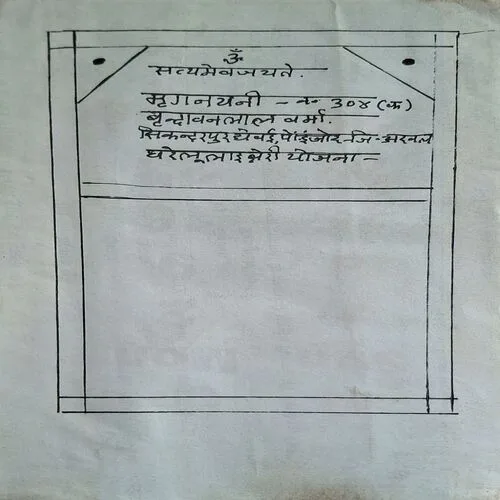 ॐ
सत्यमेवजयते.
मृगनयनी - नं० ३०४ (क)
बृन्दावनलाल वर्मा.
सिकन्दरपुर घेवई, पो० इंजोर-जि-अरवल
घरेलू लाइब्रेरी योजना -